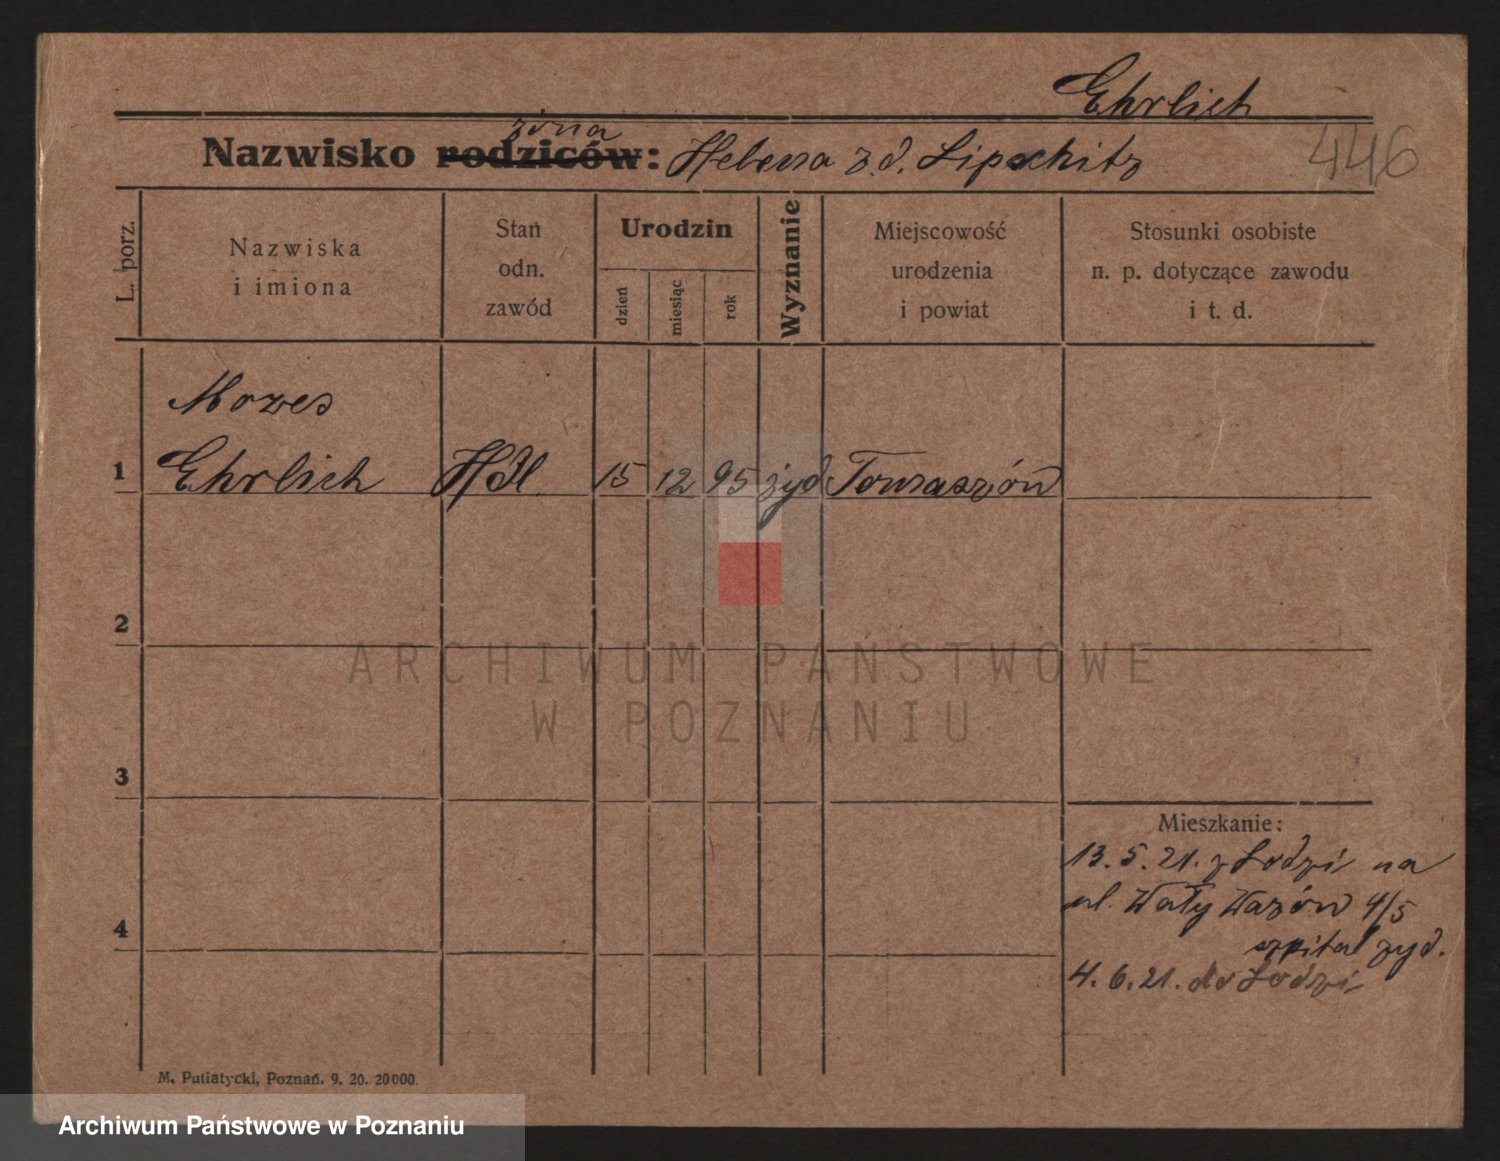 Ehrlich
żona
Nazwisko rodziców: Helena z d. Lipschitz 446
L. porz.
Nazwiska
i imiona
Stan
odn.
zawód
Urodzin
dzień
miesiąc
rok
Wyznanie
Miejscowość
urodzenia
i powiat
Stosunki osobiste
n. p. dotyczące zawodu
i t. d.
Mozes
1 Ehrlich 15 12 95 żyd Tomaszów
2
ARCHIWUM PAŃSTWOWE
W POZNANIU
3
Mieszkanie:
13. 5. 21. z Łodzi na
ul. Wały Wazów 4/5
4
szpital żyd.
4. 6. 21. do Łodzi
M. Putiatycki, Poznań. 9. 20. 20000.
Archiwum Państwowe w Poznaniu